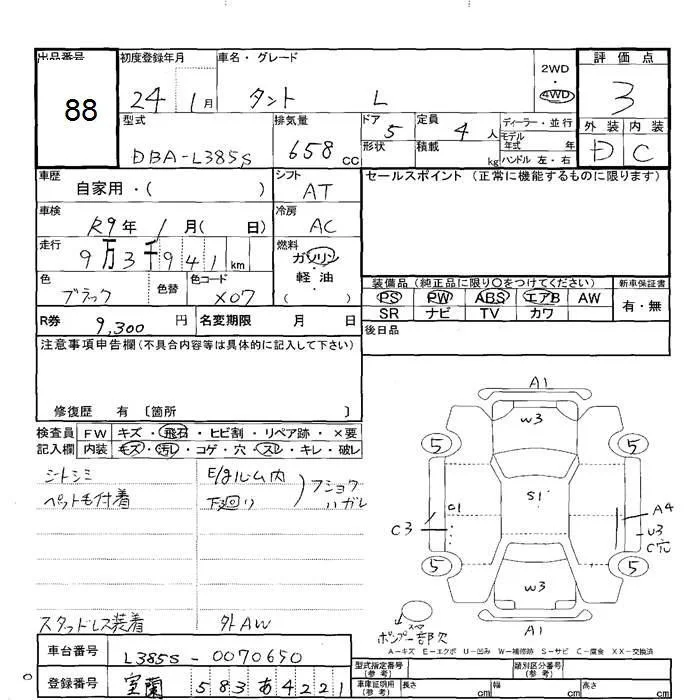 出品番号 初度登録年月 車名・グレード 2WD 評価点
88 24 1月 タント L 4WD 3
型式 排気量 ドア 5 定員 4 人 ディーラー・並行 外装 内装
DBA-L385S 658 CC 形状 積載 kg モデル年式 年 D C
ハンドル 左・右
車歴 自家用・( ) シフト AT セールスポイント (正常に機能するものに限ります)
車検 R9年 1月( 日) 冷房 AC
走行 9万3千941 km 燃料 ガソリン・軽油・( )
色 ブラック 色替 色コード X07
装備品(純正品に限り○をつけてください) 新車保証書
PS PW ABS エアB AW 有・無
SR ナビ TV カワ
R券 9,300 円 名変期限 月 日 後日品
注意事項申告欄(不具合内容等は具体的に記入して下さい)
修復歴 有 〔箇所 〕
検査員 FW キズ・飛石・ヒビ割・リペア跡・×要
記入欄 内装 キズ・汚レ・コゲ・穴・スレ・キレ・破レ
シートシミ E/gルーム内
ペット毛付着 下廻り フショク ハガレ
スタッドレス装着 外AW
A1
W3
5 5
C1 S1 A4
C3 U3
C穴
5 5
W3
スペア
ポンプ一部欠 A1
A-キズ E-エクボ U-凹み W-補修跡 S-サビ C-腐食 XX-交換済
車台番号 L385S-0070650
登録番号 室蘭 583 あ 4221
型式指定番号(参考) 類別区分番号(参考)
車庫証明用(参考) 長さ cm 幅 cm 高さ cm